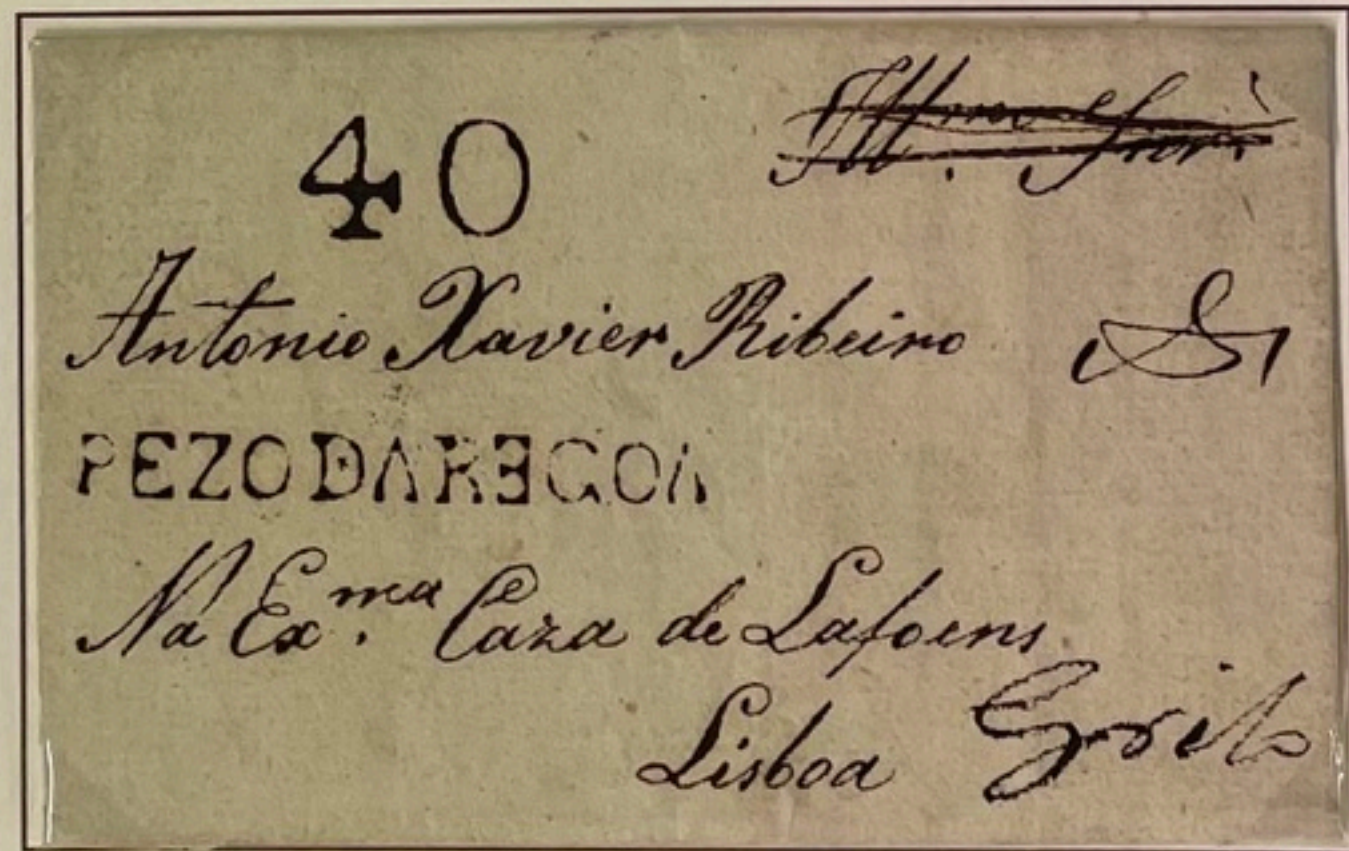 Ill.mo Snr.
40
Antonio Xavier Ribeiro
PEZO DA REGOA
Na Ex.ma Caza de Lafoens
Lisboa Grilo